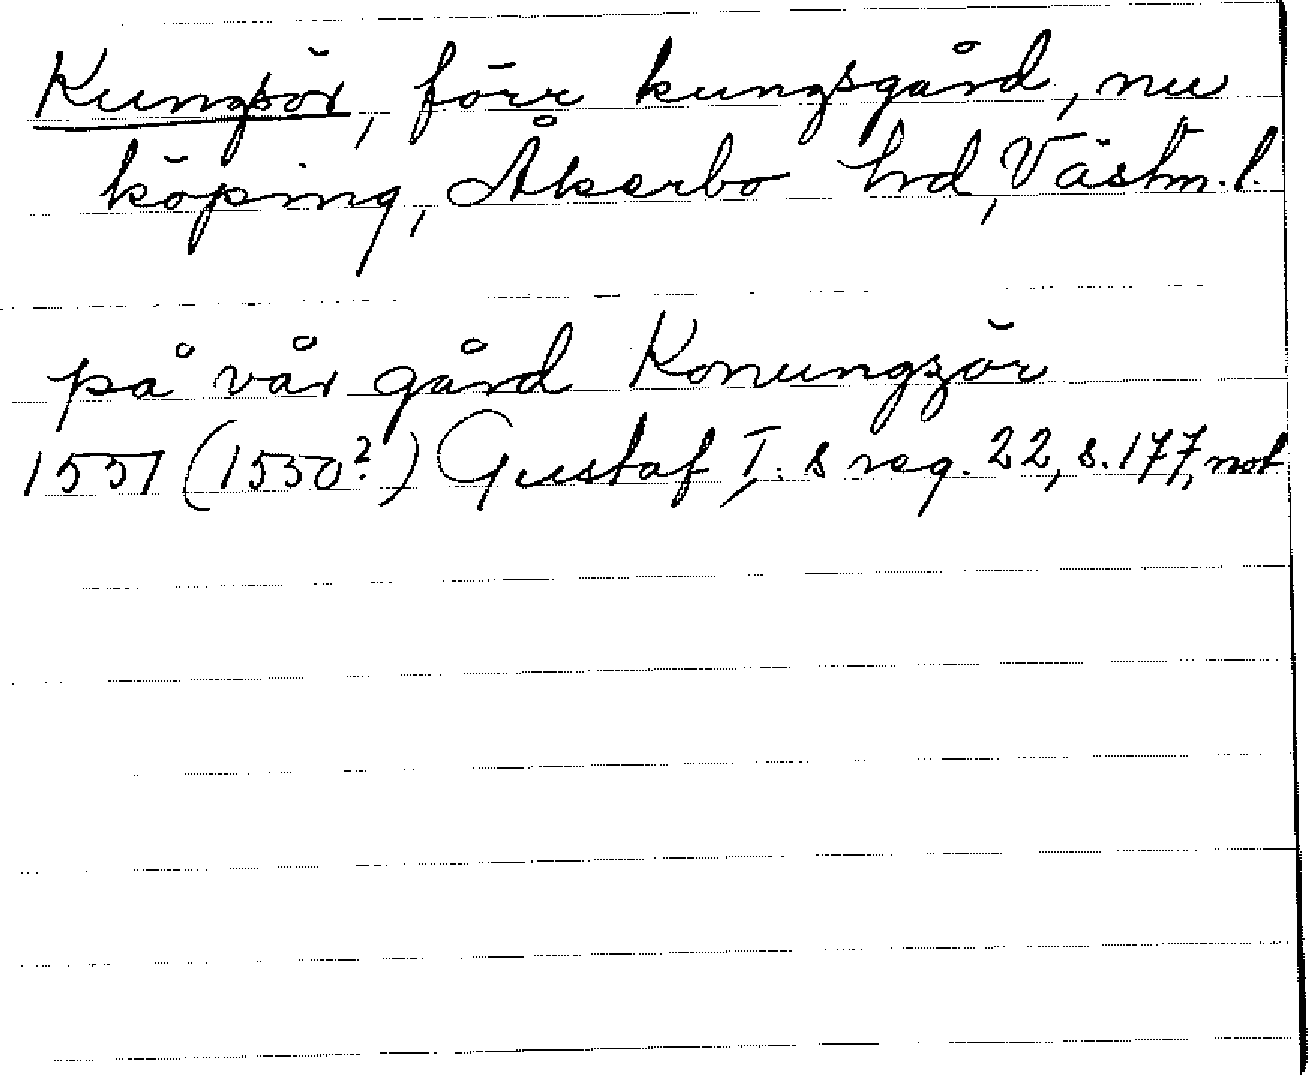 Kungsör, förr kungsgård, nu
köping, Åkerbo hd, Västm. l.
på vår gård Konungzör
1551 (1550?) Gustaf I:s reg. 22, s. 177, not